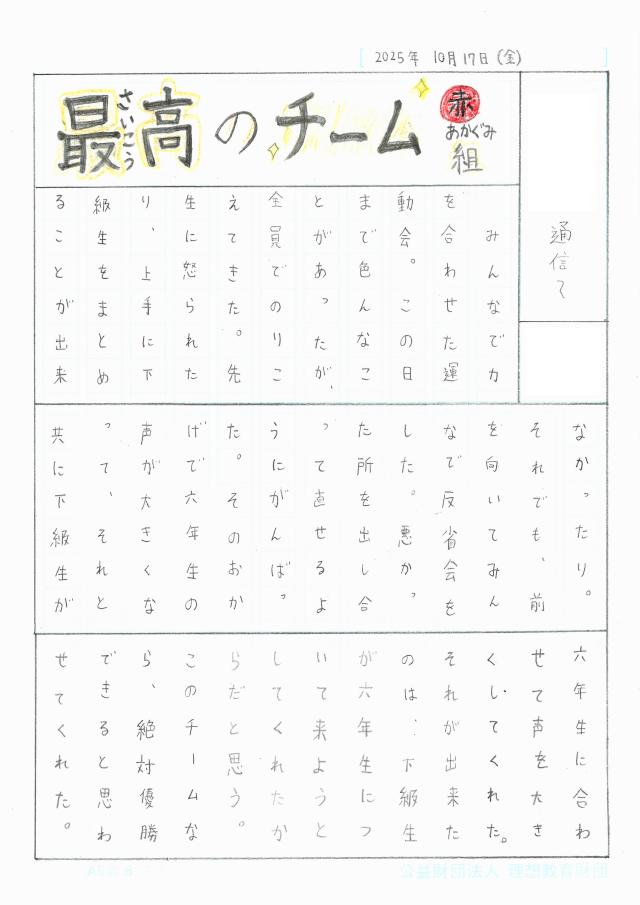 2025年 10月17日(金)
最高のチーム
さいこう
赤
あかぐみ
組
みんなで力
を合わせた運
動会。この日
まで色んなこ
とがあったが、
全員でのりこ
えてきた。先
生に怒られた
り、上手に下
級生をまとめ
ることが出来
なかったり。
それでも、前
を向いてみん
なで反省会を
した。悪かっ
た所を出し合
って直せるよ
うにがんばっ
た。そのおか
げで六年生の
声が大きくな
って、それと
共に下級生が
六年生に合わ
せて声を大き
くしてくれた。
それが出来た
のは、下級生
が六年生につ
いて来ようと
してくれたか
らだと思う。
このチームな
ら、絶対優勝
できると思わ
せてくれた。
公益財団法人 理想教育財団